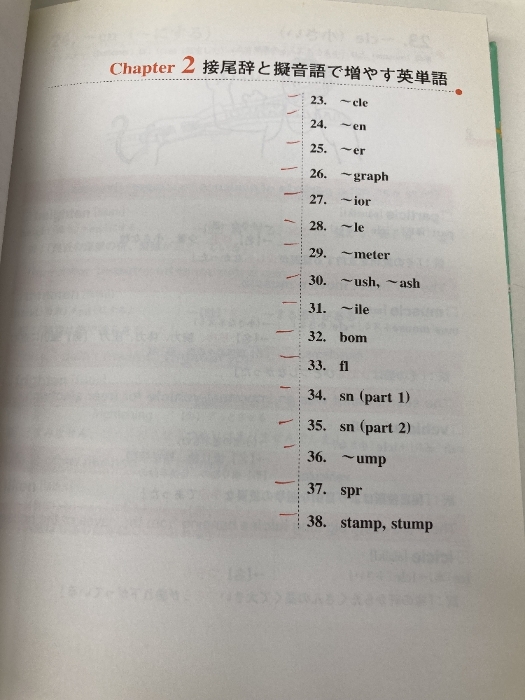 Chapter 2 接尾辞と擬音語で増やす英単語
23. ~cle
24. ~en
25. ~er
26. ~graph
27. ~ior
28. ~le
29. ~meter
30. ~ush, ~ash
31. ~ile
32. bom
33. fl
34. sn (part 1)
35. sn (part 2)
36. ~ump
37. spr
38. stamp, stump